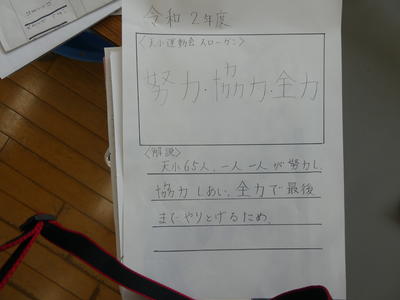 令和2年度
〈天小運動会スローガン〉
努力・協力・全力
〈解説〉
天小65人、一人一人が努力し、
協力しあい、全力で最後
までやりとげるため。